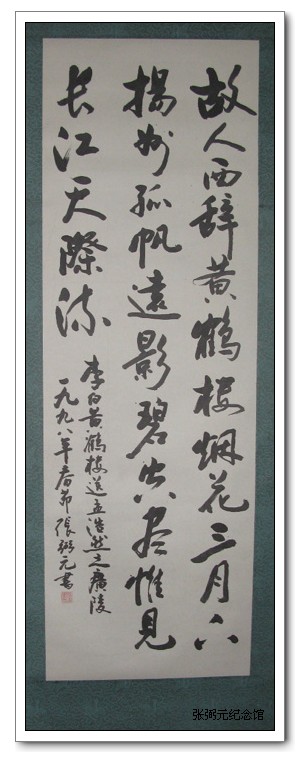 故人西辞黄鹤楼烟花三月下
揚州孤帆遠影碧空尽惟見
长江天際流
李白黄鹤楼送孟浩然之廣陵
一九九八年春节張弼元書
张弼元纪念馆